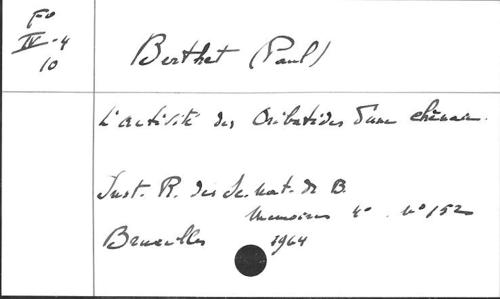 Fo
IV-4
10
Berthet (Paul)
L'activité des Oribatides d'une chênaie.
Inst. R. des Sc. nat. de B.
Memoires 4o . no 152
Bruxelles 1964